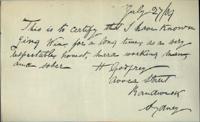 July 27/09
This is to certify that I have known
Ging Wing for a long time as a very
respectable honest, hard working man
and sober
H Godfrey
Avoca Street
Randwick
Sydney